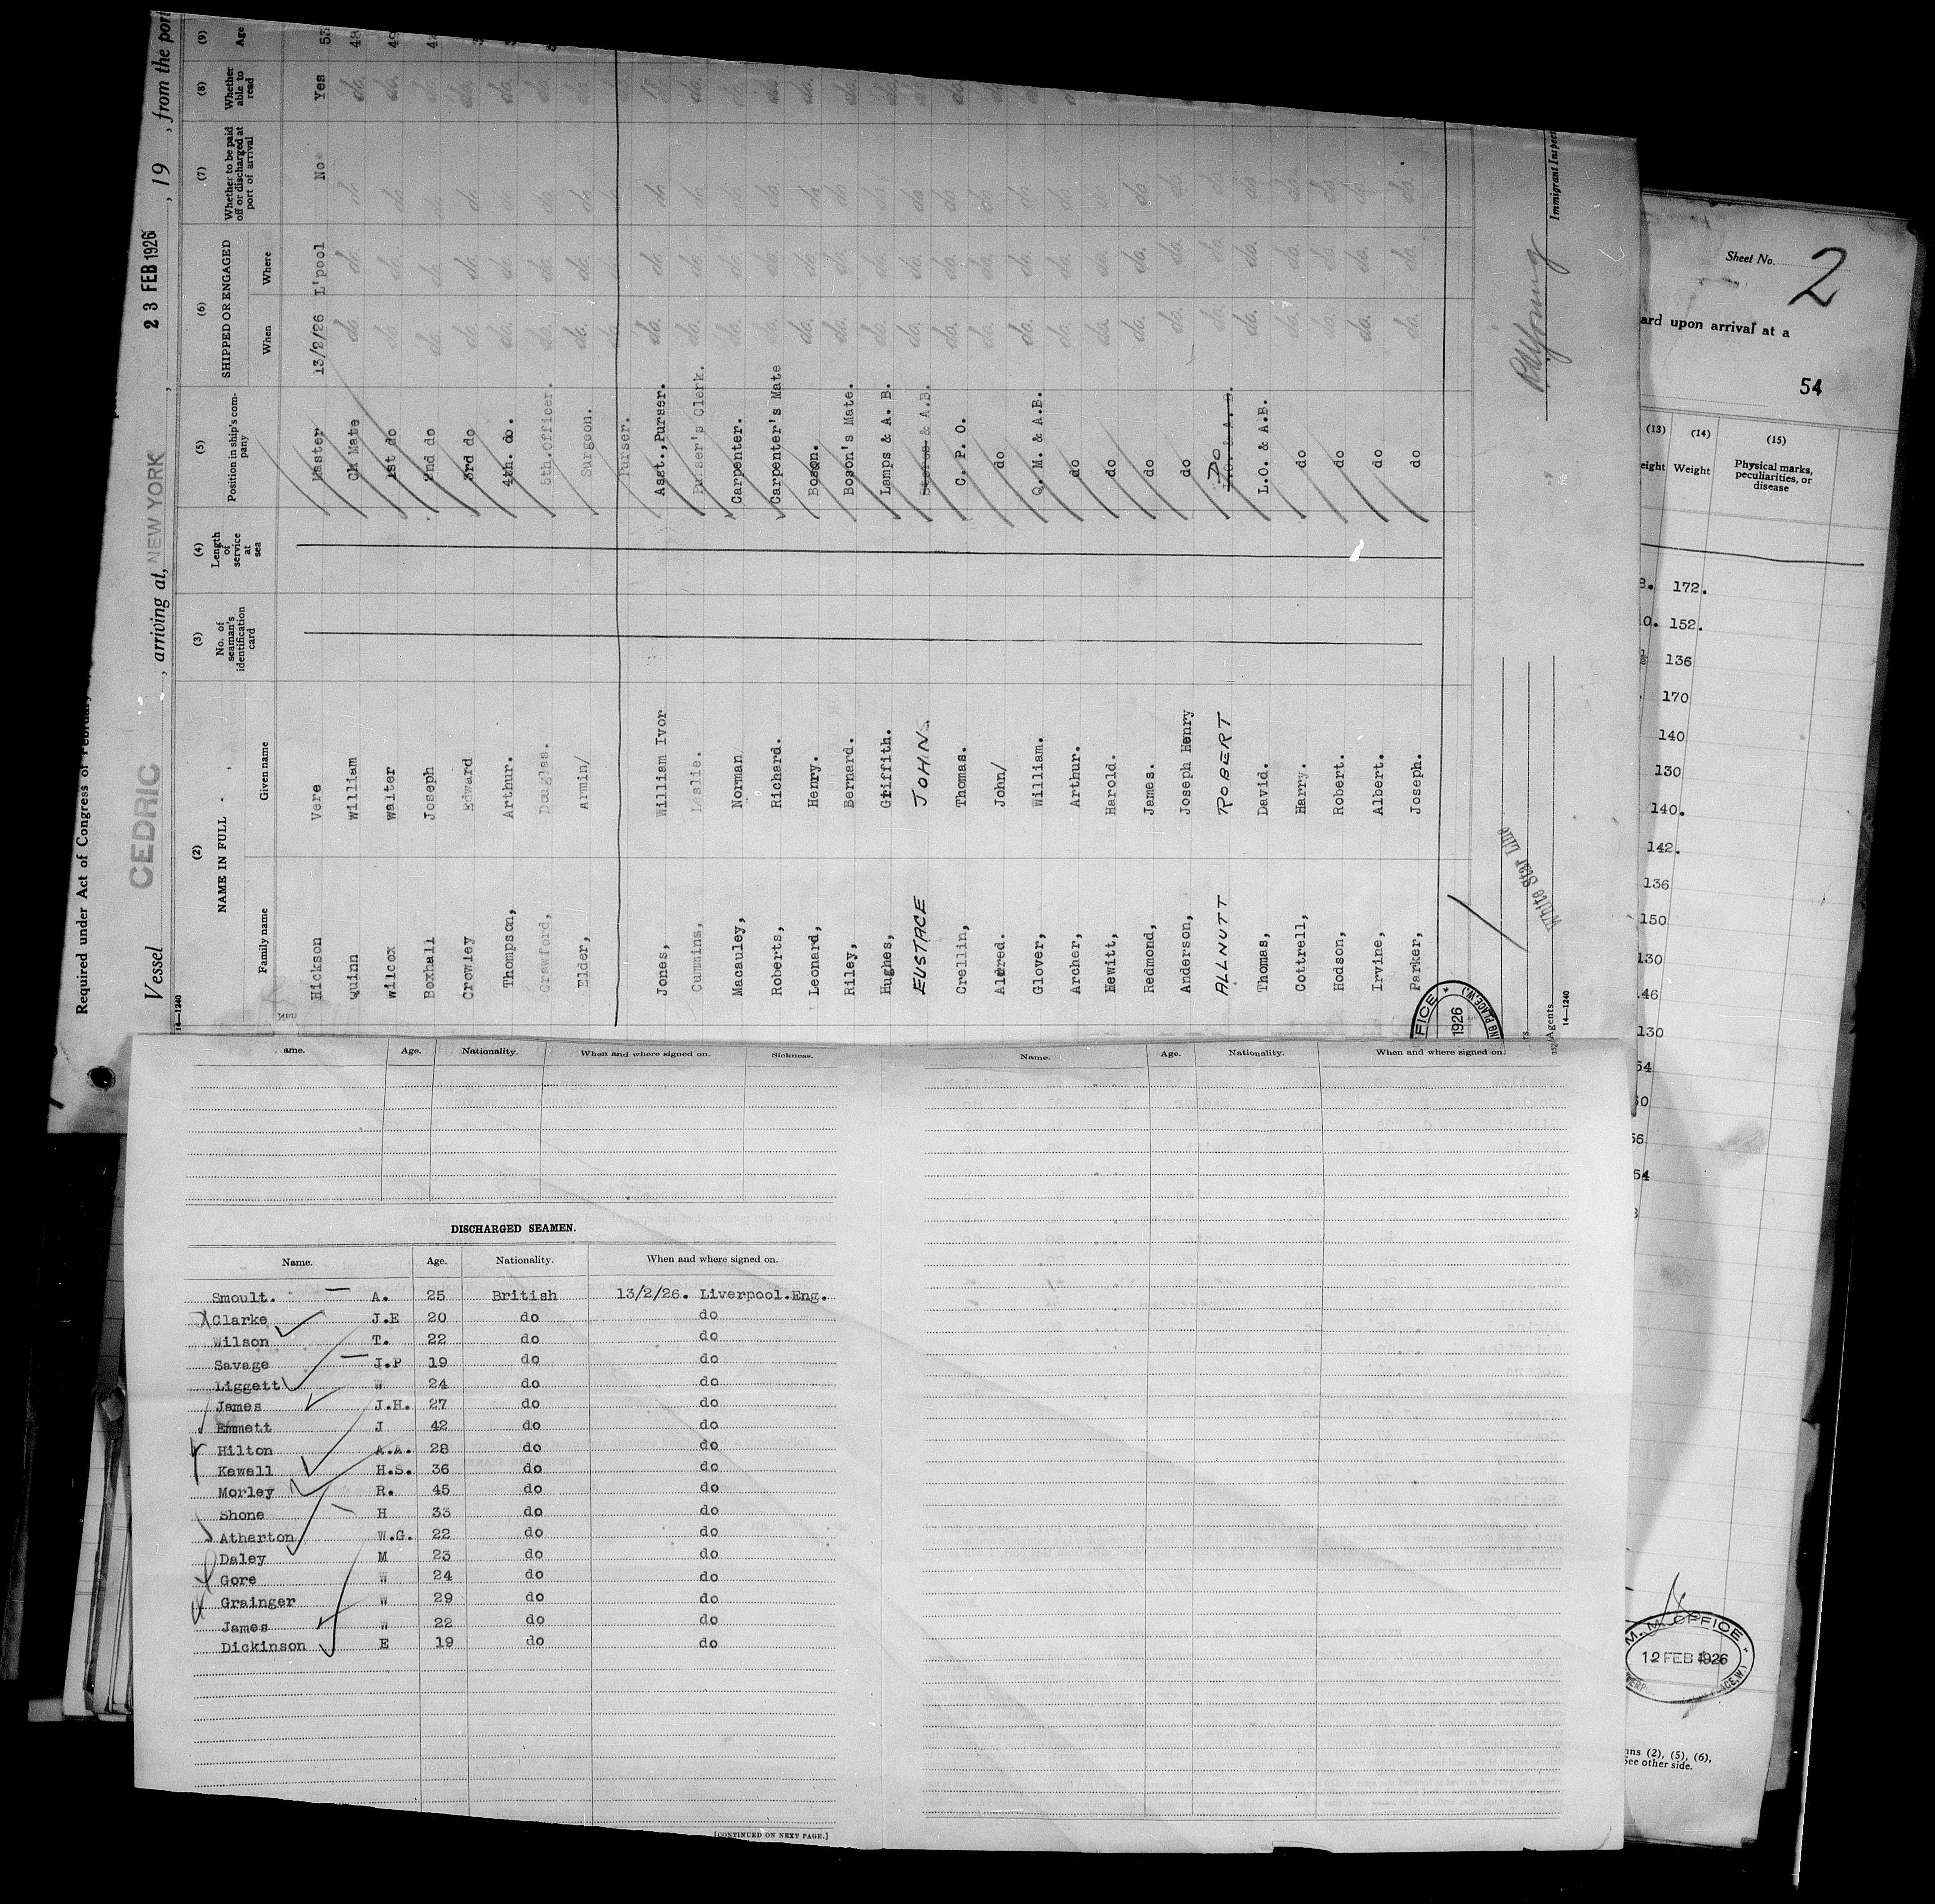 Required under Act of Congress of February
Vessel CEDRIC, arriving at, NEW YORK, 23 FEB 1926, 19 , from the port
14—1240
(2) (3) (4) (5) (6) (7) (8) (9)
NAME IN FULL
Family name Given name
No. of seaman's identification card
Length of service at sea
Position in ship's company
SHIPPED OR ENGAGED
When Where
Whether to be paid off or discharged at port of arrival
Whether able to read
Age
Hickson Vere Master 13/2/26 L'pool No Yes 53
Quinn William Ch Mate do. do. do do. 48
Wilcox Walter 1st do do. do. do do.
Boxhall Joseph 2nd do do. do. do. do.
Crowley Edward 3rd do do. do. do. do.
Thompson, Arthur. 4th. do. do. do. do.
Crawford, Douglas. 5th.Officer. do. do. do. do.
Elder, Armin/ Surgeon. do. do. do.
Purser. do. do. do
Jones, William Ivor Asst.,Purser. do. do. do
Cummins, Leslie. Purser's Clerk. do. do. do do.
Macauley, Norman Carpenter. do. do. do do.
Roberts, Richard. Carpenter's Mate do. do. do. do.
Leonard, Henry. Bosun. do. do. do do.
Riley, Bernard. Boson's Mate. do. do. do do
Hughes, Griffith. Lamps & A. B. do. do. do. do.
EUSTACE JOHN. & A.B. do. do. do do
Crellin, Thomas. C. P. O. do. do. do do
Aldred. John/ do do. do. do do
Glover, William. Q. M. & A.B. do. do. do. do
Archer, Arthur. do do. do. do. do.
Hewitt, Harold. do do. do.
Redmond, James. do do. do. do
Anderson, Joseph Henry do do. do. do
ALLNUTT ROBERT DO do. do. do.
Thomas, David. L.O. & A.B. do. do. do
Cottrell, Harry. do do. do. do
Hodson, Robert. do do. do. do
Irvine, Albert. do do. do. do
Parker, Joseph. do do. do. do.
White Star Line
Agents.
14—1240
Immigrant Inspec
FICE
1926
Sheet No. 2
ard upon arrival at a
54
(13) (14) (15)
eight Weight Physical marks, peculiarities, or disease
172.
152.
136
170
140
130
140.
142.
136
150
130
46
130
54
M. M. OFFICE
12 FEB 1926
ns (2), (5), (6),
See other side.
ame. Age. Nationality. When and where signed on. Sickness.
Name. Age. Nationality. When and where signed on.
DISCHARGED SEAMEN.
Name. Age. Nationality. When and where signed on.
Smoult. A. 25 British 13/2/26. Liverpool.Eng.
Clarke J.E 20 do do
Wilson T. 22 do do
Savage J.P 19 do do
Liggett W 24 do do
James J.H. 27 do do
Emmett J 42 do do
Hilton A.A. 28 do do
Kewell H.S. 36 do do
Morley R. 45 do do
Shone H 33 do do
Atherton W.G. 22 do do
Daley M 23 do do
Gore W 24 do do
Grainger W 29 do do
James W 22 do do
Dickinson E 19 do do
[CONTINUED ON NEXT PAGE.]